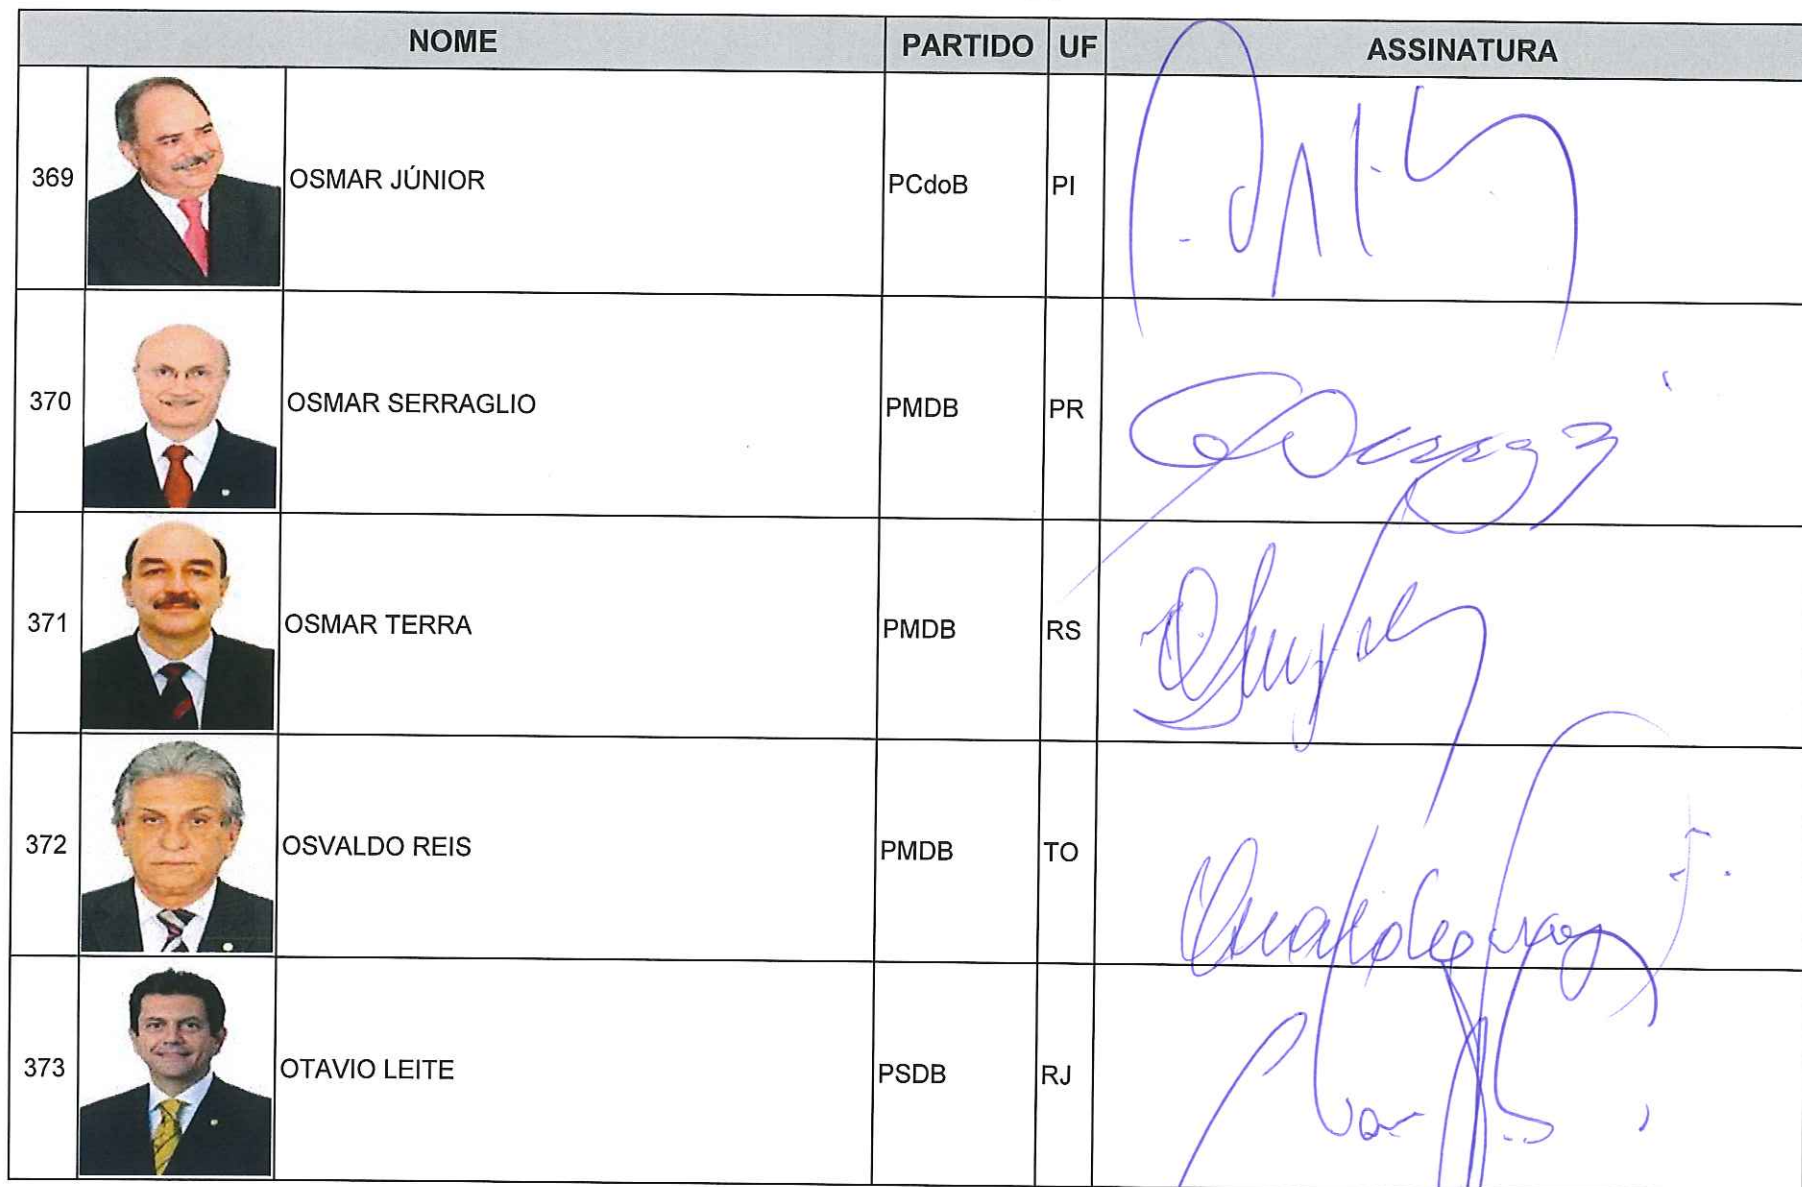 NOME PARTIDO UF ASSINATURA
369 OSMAR JÚNIOR PCdoB PI
370 OSMAR SERRAGLIO PMDB PR
371 OSMAR TERRA PMDB RS
372 OSVALDO REIS PMDB TO
373 OTAVIO LEITE PSDB RJ